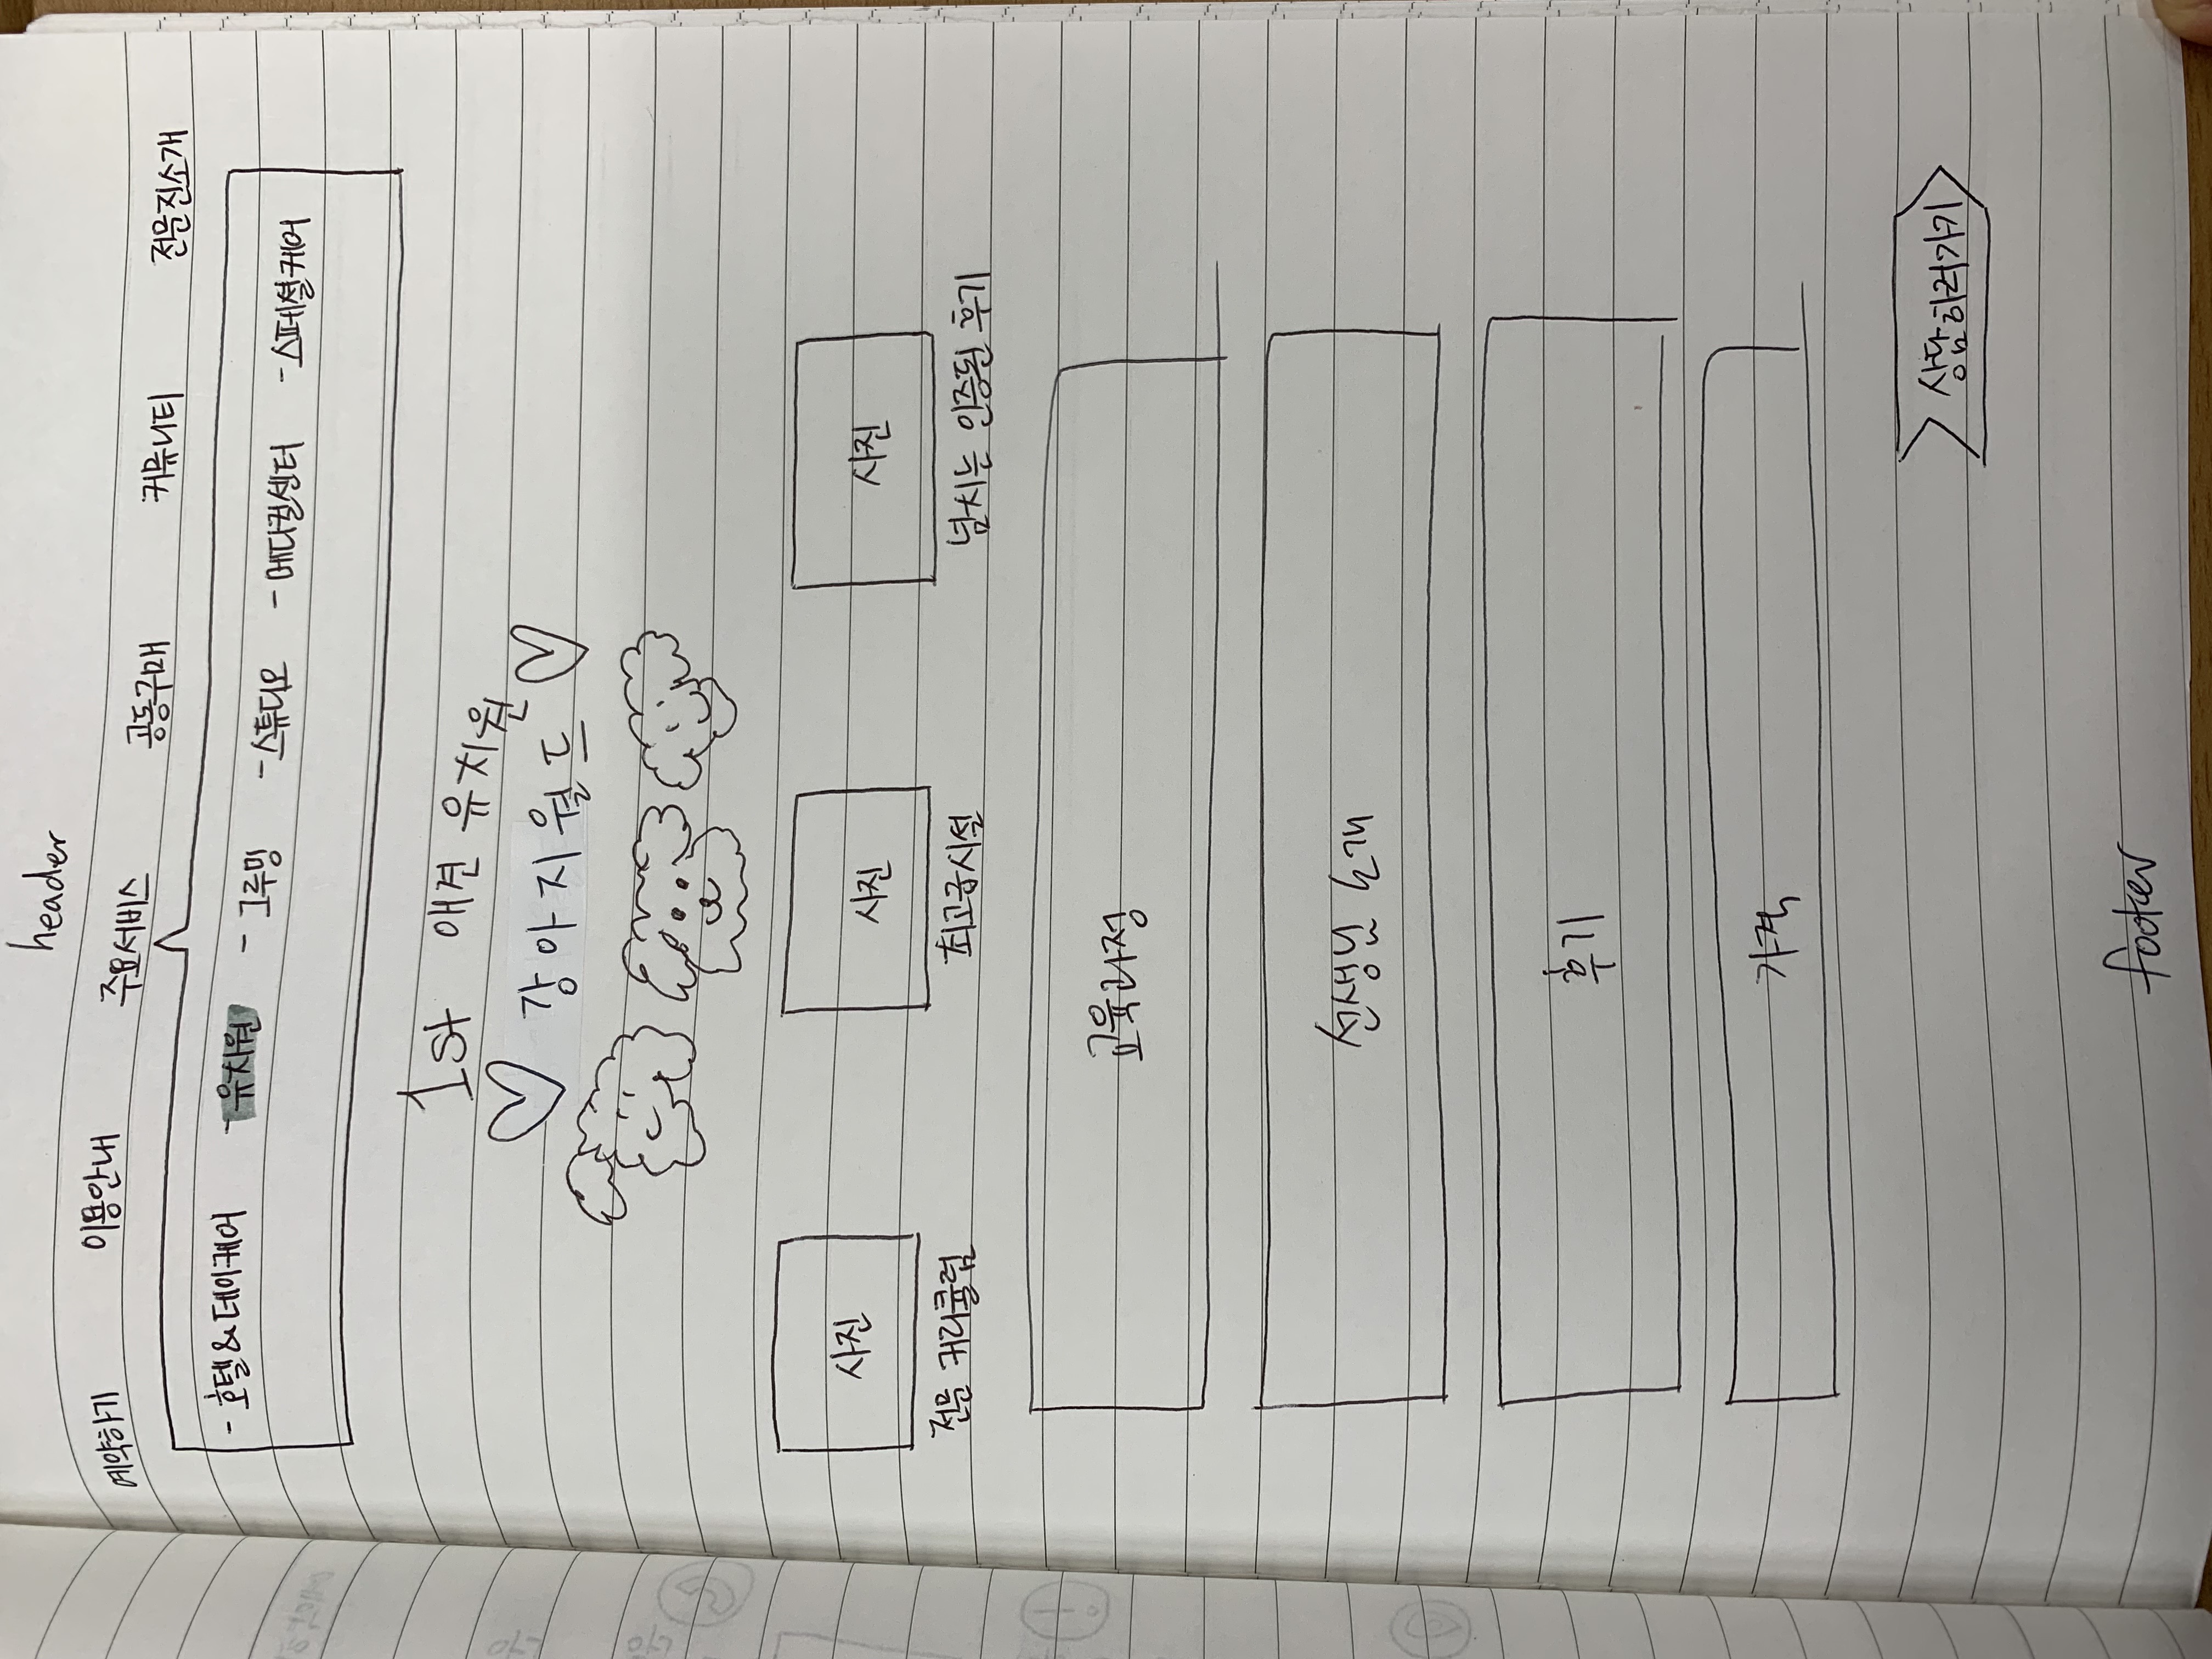 header
예약하기 이용안내 주요서비스 공동구매 커뮤니티 전문진소개
- 호텔&데이케어 - 유치원 - 그루밍 - 스튜디오 - 메디컬센터 - 스페셜케어
1st 애견 유치원
강아지월드
사진 사진 사진
전문 커리큘럼 최고급시설 넘치는 인증된 후기
교육과정
선생님 소개
후기
가격
상담하러가기
footer